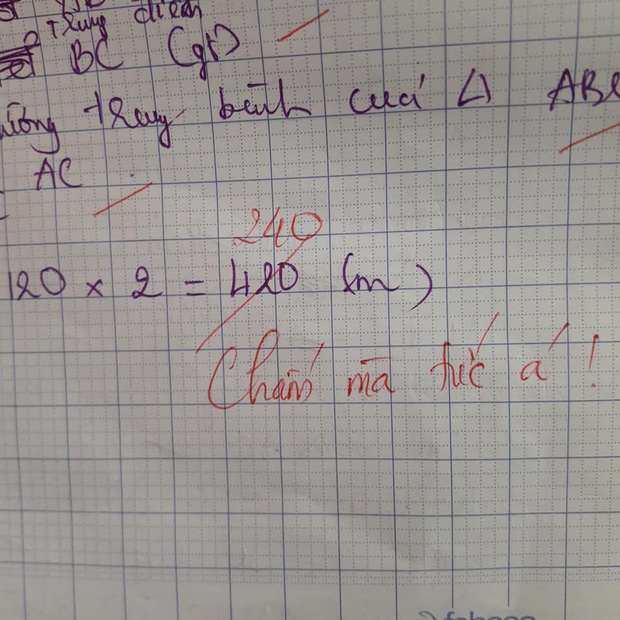 Trung điểm
BC (gt)
trung bình của Δ AB
AC
240
120 x 2 = 420 (m)
Chấm mà tức á!